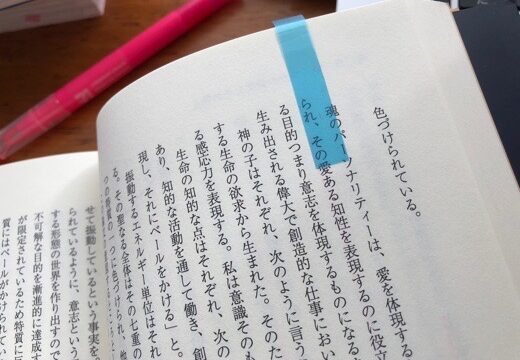 色づけられている。
魂のパーソナリティーは、愛を体現する
られ、その愛ある知性を表現するのに役立
る目的つまり意志を体現するものになる
生み出される偉大で創造的な仕事におい
神の子はそれぞれ、次のように言う
する生命の欲求から生まれた。そのた
る感応力を表現する。私は意識そのも
生命の知的な点はそれぞれ、次の
あり、知的な活動を通して働き、創
現し、それにベールをかける」と。
振動するエネルギー単位はそれ
る。その聖なる全体はその七重の
つの特質の一つに色づけられ、他
せて振動しているという事実を
られているように、意志という
する形態の世界を作り出すので
不可解な目的を漸進的に達成
が限定されているため特質に
質にはベールがかけられて